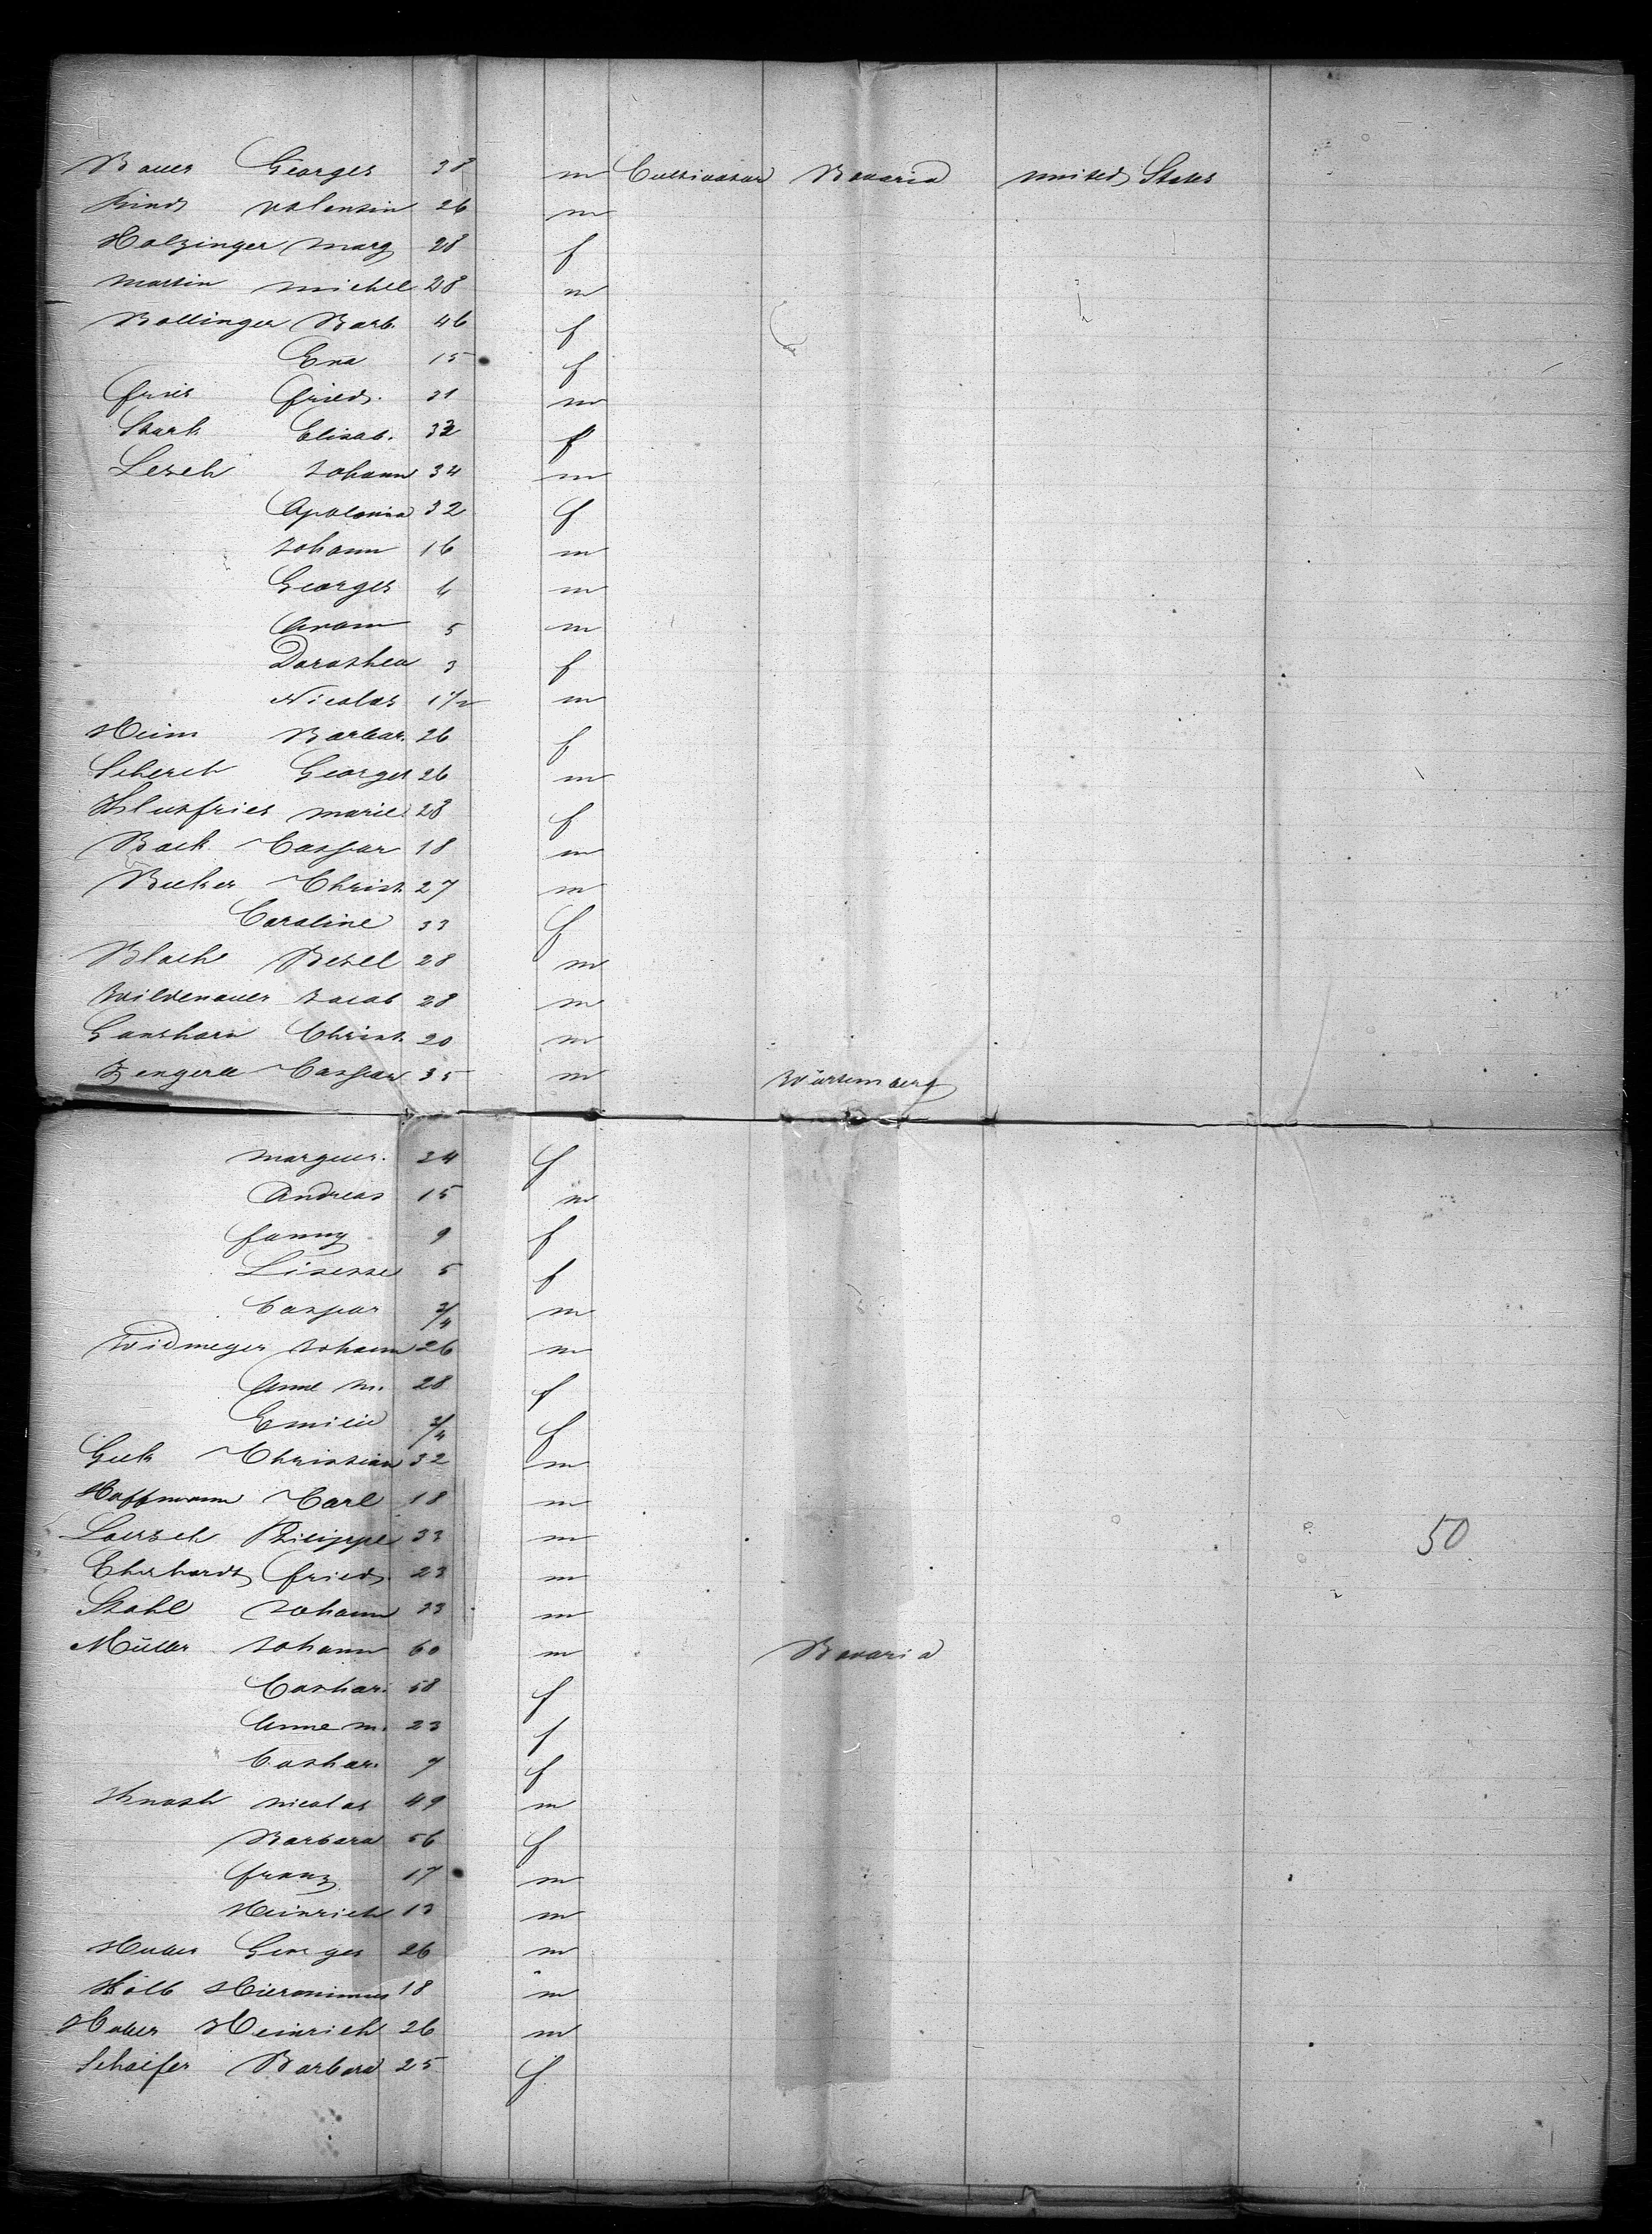 Bauer Georges 38 m Cultivatur Bavaria united States
Kind Valentin 26 m
Holzinger Marg 28 f
Martin Michel 28 m
Bollinger Barb. 46 f
Eva 15 f
Fries Fried. 31 m
Stark Elisab. 32 f
Lesch Johann 34 m
Apolonia 32 f
Johann 16 m
Georges 6 m
Adam 5 m
Dorothea 3 f
Nicolas 1 1/2 m
Heim Barbar. 26 f
Scherch Georges 26 m
Klutfries Marie 28 f
Back Caspar 18 m
Becker Christ. 27 m
Caroline 33 f
Bloch Betel 28 m
Wildenauer Jacob 28 m
Ganshorn Christ. 20 m
Zengerle Caspar 35 m Würtemberg
Marguer. 34 f
Andreas 15 m
Fanny 9 f
Lisette 5 f
Caspar 3/4 m
Widmeyer Johann 26 m
Anne M. 28 f
Emilie 3/4 f
Geck Christian 32 m
Hoffmann Carl 18 m
Loersch Philippe 33 m
Eherhardt Fried. 23 m
Stahl Johann 33 m
Müller Johann 60 m Bavaria
Cathar. 58 f
Anne M. 23 f
Cathar. 7 f
Knoth Nicolas 49 m
Barbara 56 f
Franz 17 m
Heinrich 13 m
Huber Georges 26 m
Kolb Hieronimus 18 m
Heinrich 26 m
Schaefer Barbara 25 f
50